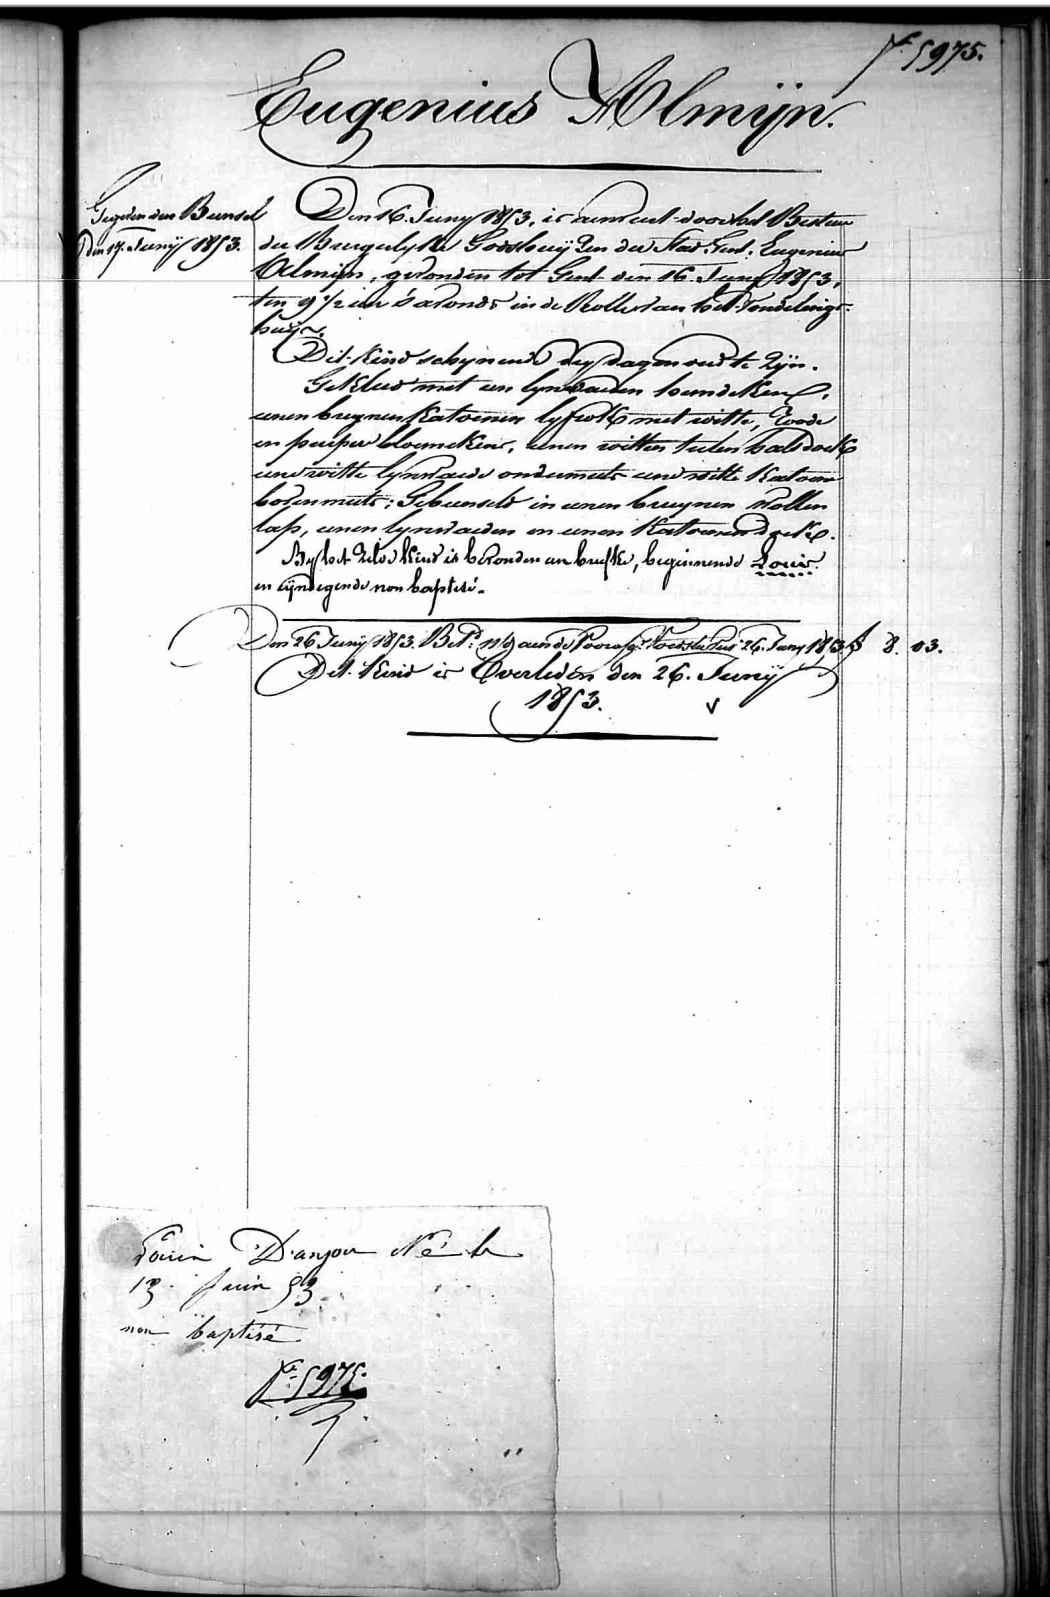 N.º 5975.
Eugenius Almijn.
Gegeven den Bunsel
Den 17. Junij 1853.
Den 16. Juny 1853, is aenveert door het Bestuer
der Burgerlyke Godshuyzen der Stad Gent, Eugenius
Almijn, gevonden tot Gent den 16. Juny 1853,
ten 9 1/2 ure 's avonds in de Rolle van het Vondelings-
huys.
Dit kind schynende dry dagen oud te zyn.
Gekleed met een lynwaeden hemdeken,
eenen bruynen katoenen lyfrok met witte, roode
en purper bloemekens, eenen witten tulen halsdoek
eene witte lynwaede ondermuts eene witte katoene
bovenmuts; Gebunseld in eenen bruynen wollen
lap, eenen lynwaeden en eenen katoenen doek.
By het zelve kind is bevonden een briefke, beginnende Louis
en eyndegende non baptisé.
Den 26 Juny 1853. Bet.d aen de Voedster tot 26. Juny 1853 f 8. 03.
Dit Kind is Overleden den 26. Junij
1853.
Louis D'anjou Né le
13 Juin 53
non baptisé
N.º 5975.